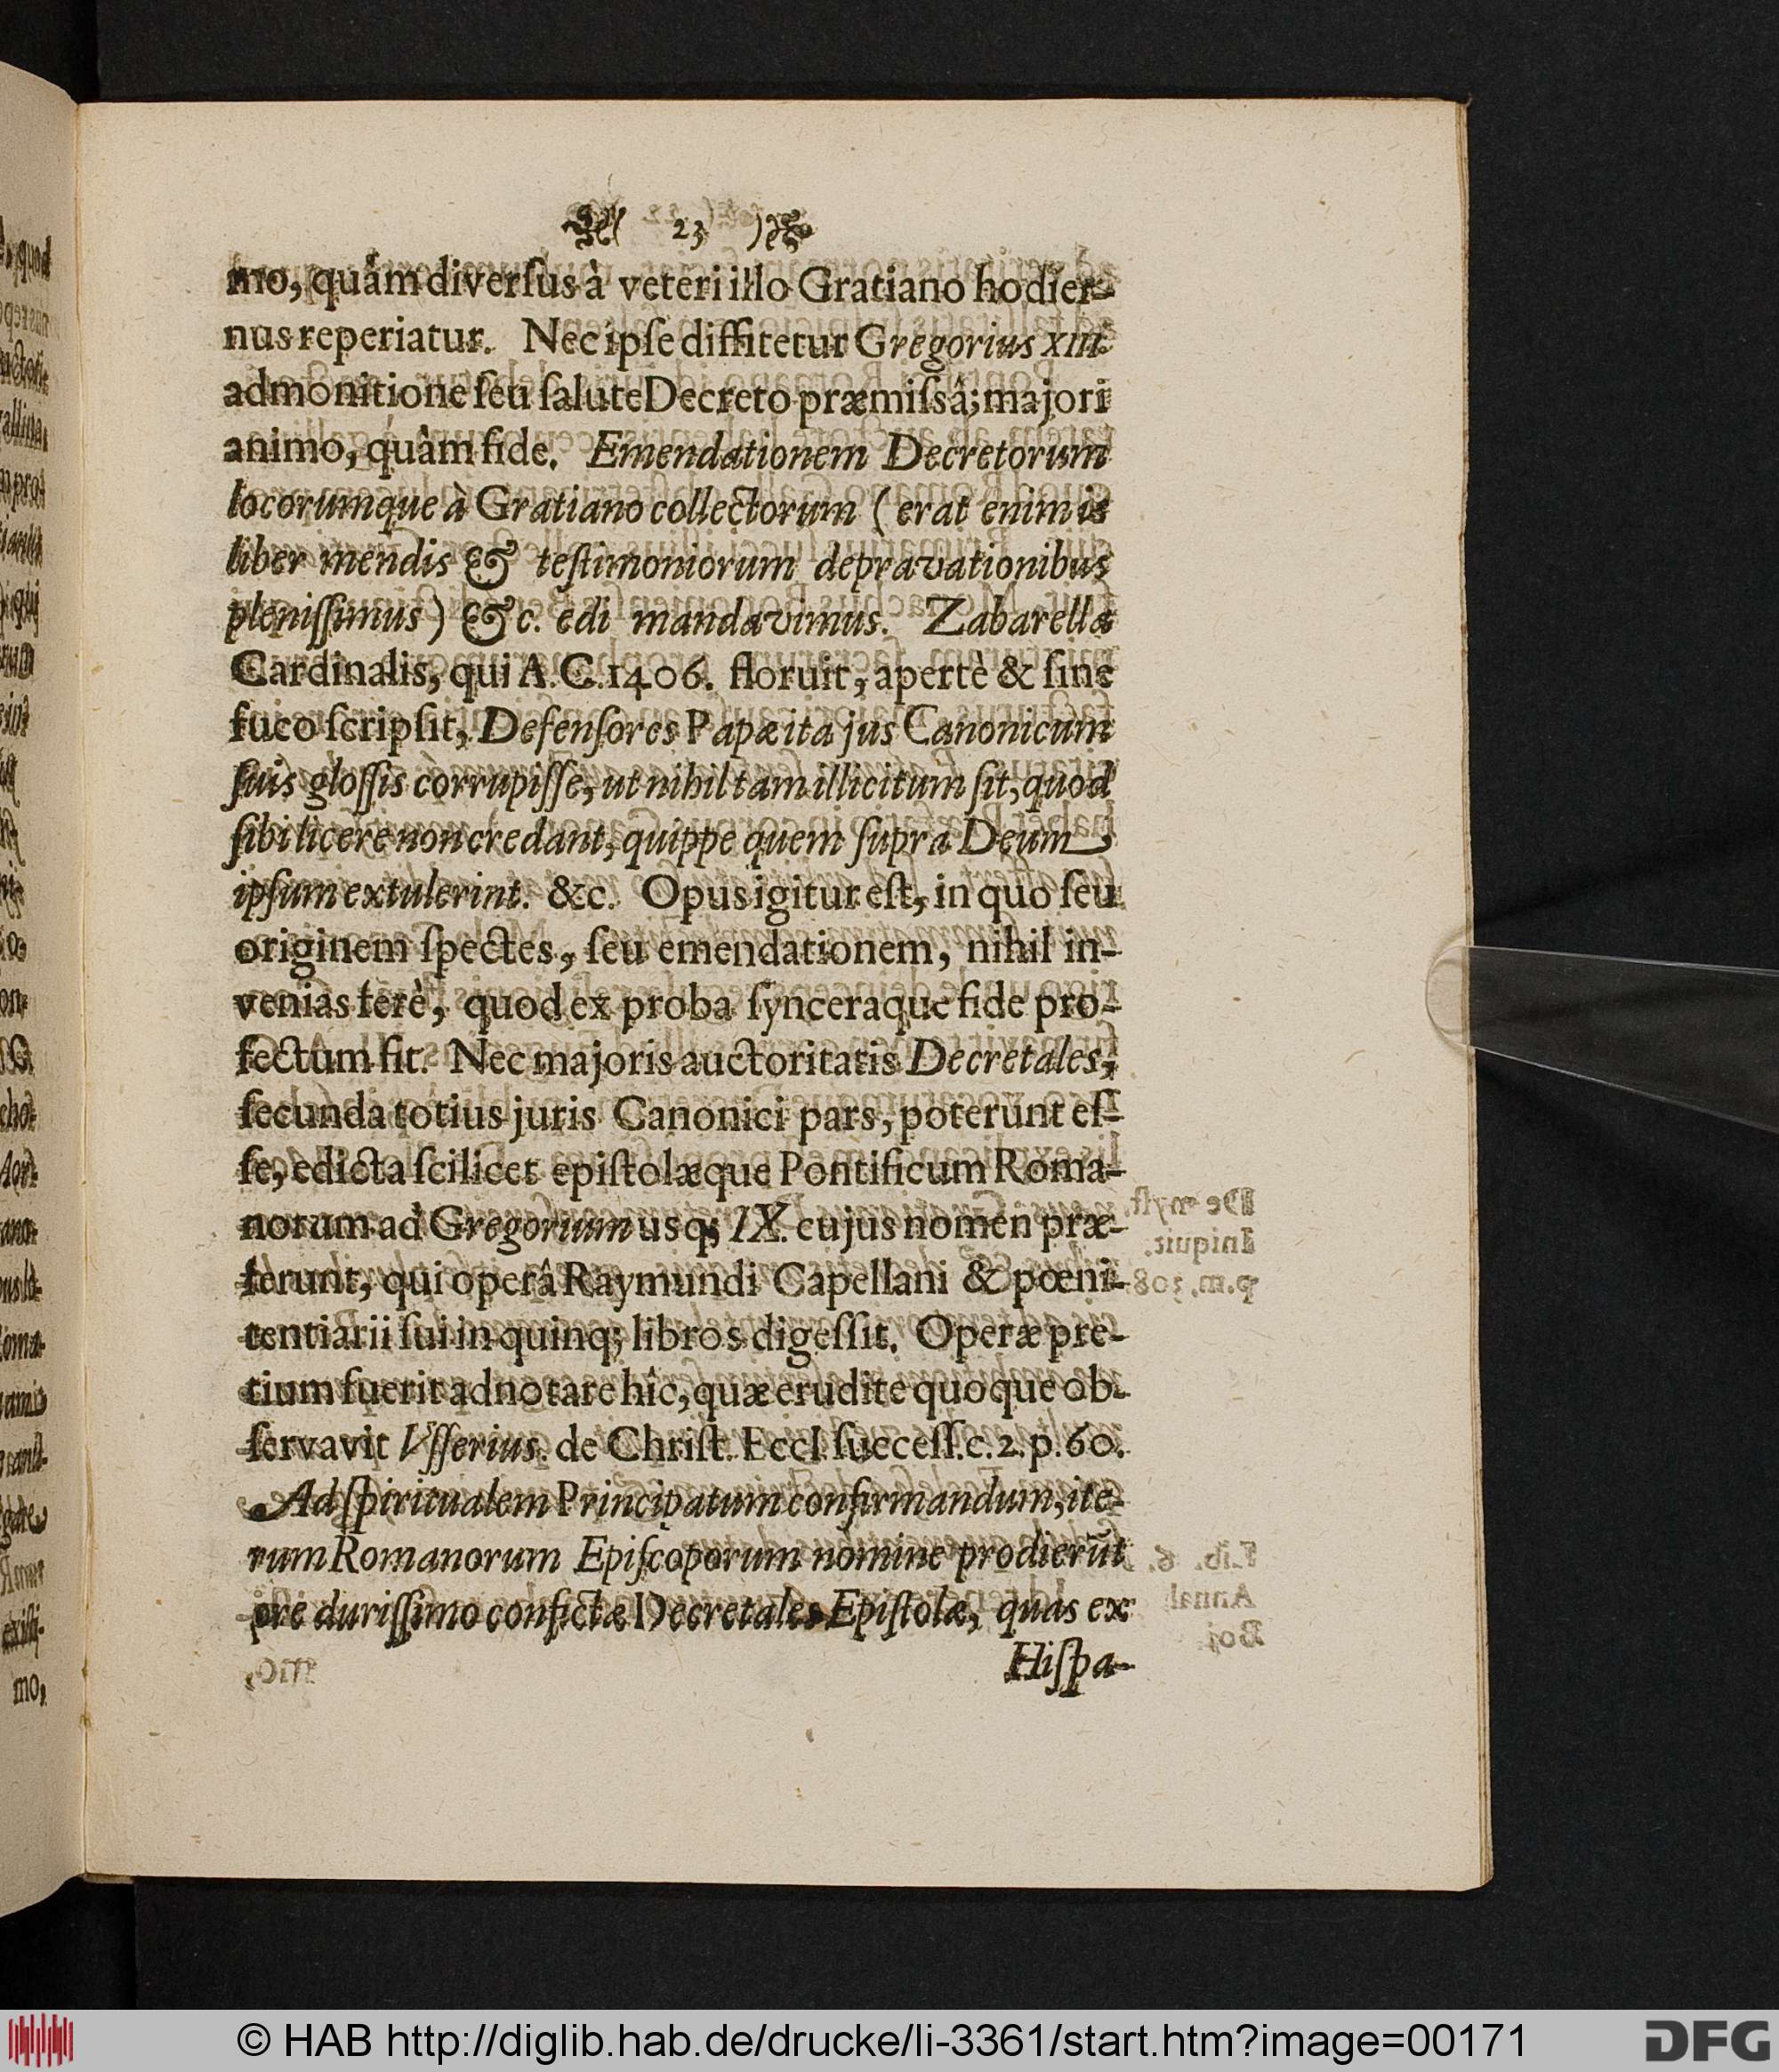 23
mo, quâm diverſus à veteri illo Gratiano hodier-
nus reperiatur. Nec ipſe diffitetur Gregorius XIII.
admonitione ſeu ſalute Decreto præmiſsâ; majori
animo, quâm fide. Emendationem Decretorum
locorumque à Gratiano collectorum (erat enim is
liber mendis & teſtimoniorum depravationibus
pleniſſimus) &c. edi mandavimus. Zabarella
Cardinalis, qui A. C. 1406. floruit, apertè & ſine
fuco ſcripſit, Defenſores Papæ ita jus Canonicum
ſuis gloſſis corrupiſſe, ut nihil tam illicitum ſit, quod
ſibi licere non credant, quippe quem ſupra Deum
ipſum extulerint. &c. Opus igitur eſt, in quo ſeu
originem ſpectes, ſeu emendationem, nihil in-
venias ferè, quod ex proba ſynceraque fide pro-
fectum ſit. Nec majoris auctoritatis Decretales,
ſecunda totius juris Canonici pars, poterunt eſ-
ſe, edicta ſcilicet epiſtolæque Pontificum Roma-
norum ad Gregorium usq; IX. cujus nomen præ-
ferunt, qui operâ Raymundi Capellani & pœni-
tentiarii ſui in quinq; libros digeſſit. Operæ pre-
tium fuerit adnotare hîc, quæ erudite quoque ob-
ſervavit Uſſerius. de Chriſt. Eccl. ſucceſſ. c. 2. p. 60.
Ad ſpiritualem Principatum confirmandum, ite-
rum Romanorum Epiſcoporum nomine prodierũt
ore duriſſimo confictæ Decretales Epiſtolæ, quas ex
Hiſpa-
mo,
© HAB http://diglib.hab.de/drucke/li-3361/start.htm?image=00171
DFG